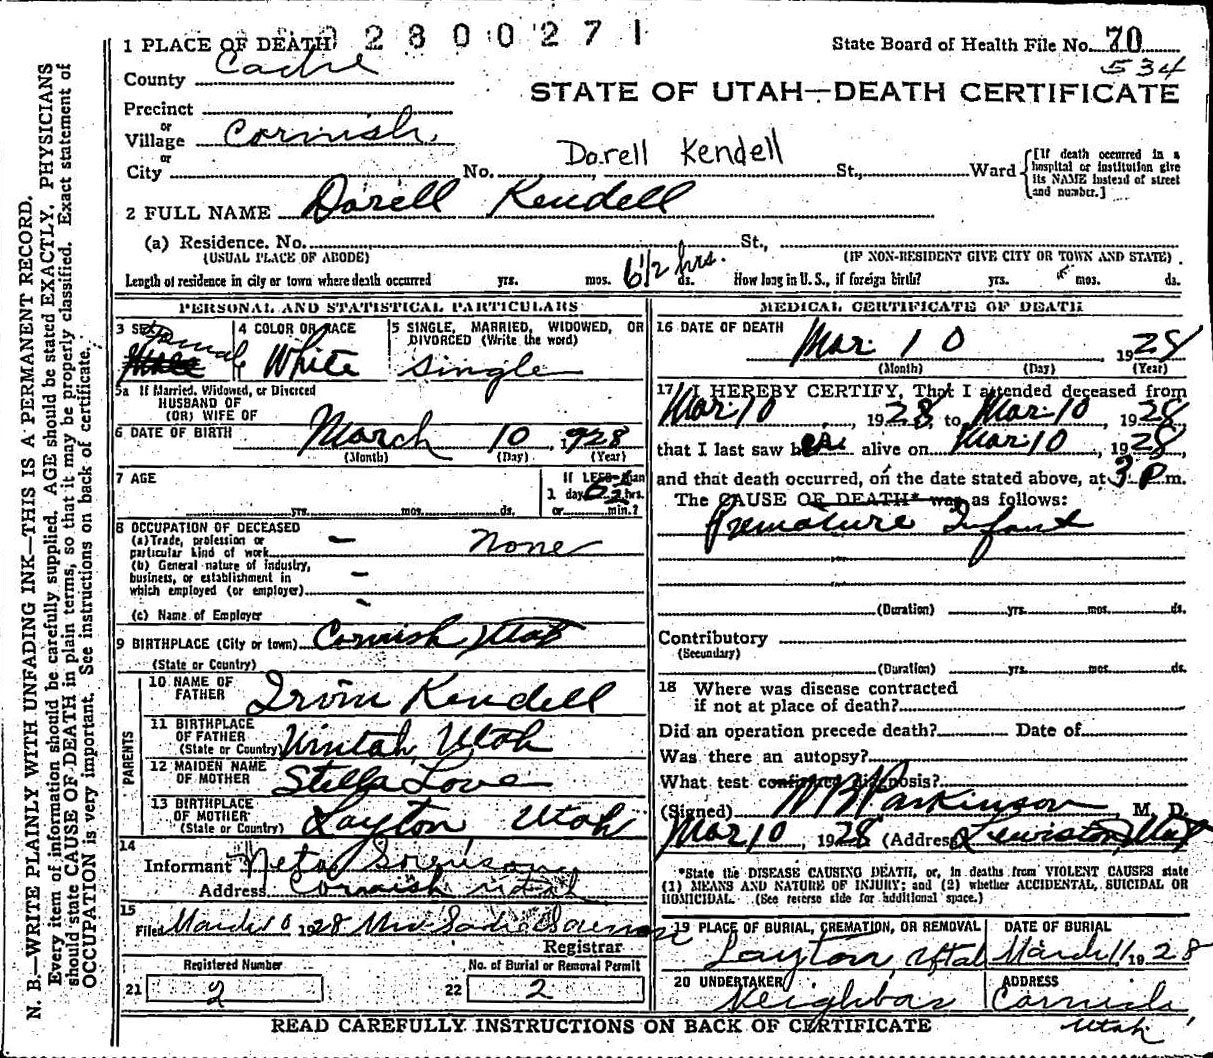 N. B.—WRITE PLAINLY WITH UNFADING INK—THIS IS A PERMANENT RECORD.
Every item of information should be carefully supplied. AGE should be stated EXACTLY. PHYSICIANS
should state CAUSE OF DEATH in plain terms, so that it may be properly classified. Exact statement of
OCCUPATION is very important. See instructions on back of certificate.
2800271
1 PLACE OF DEATH
State Board of Health File No. 70
534
County Cache
STATE OF UTAH—DEATH CERTIFICATE
Precinct
or
Village Cornish
or
Darell Kendell
City No. St., Ward
[If death occurred in a
hospital or institution give
its NAME instead of street
and number.]
2 FULL NAME Darell Kendell
(a) Residence. No. St.,
(USUAL PLACE OF ABODE) (IF NON-RESIDENT GIVE CITY OR TOWN AND STATE)
Length of residence in city or town where death occurred yrs. mos. 6 1/2 hrs. ds. How long in U. S., if foreign birth? yrs. mos. ds.
PERSONAL AND STATISTICAL PARTICULARS
3 SEX Female
Male
4 COLOR OR RACE
White
5 SINGLE, MARRIED, WIDOWED, OR
DIVORCED (Write the word)
Single
5a If Married, Widowed, or Divorced
HUSBAND OF
(OR) WIFE OF
6 DATE OF BIRTH March 10 1928
(Month) (Day) (Year)
7 AGE
yrs. mos. ds.
If LESS than
1 day 6 1/2 hrs.
or min.?
8 OCCUPATION OF DECEASED
(a) Trade, profession or
particular kind of work — None
(b) General nature of industry,
business, or establishment in
which employed (or employer) —
(c) Name of Employer —
9 BIRTHPLACE (City or town) Cornish Utah
(State or Country)
PARENTS
10 NAME OF
FATHER Irvin Kendell
11 BIRTHPLACE
OF FATHER
(State or Country) Uintah, Utah
12 MAIDEN NAME
OF MOTHER Stella Love
13 BIRTHPLACE
OF MOTHER
(State or Country) Layton Utah
14
Informant Neta Sorenson
Address Cornish Utah
15
Filed March 10 1928 Mrs Sadie Sorenson
Registrar
Registered Number
21 2
No. of Burial or Removal Permit
22 2
MEDICAL CERTIFICATE OF DEATH
16 DATE OF DEATH
Mar 10 1928
(Month) (Day) (Year)
17 I HEREBY CERTIFY, That I attended deceased from
Mar 10, 1928, to Mar 10, 1928
that I last saw her alive on Mar 10, 1928
and that death occurred, on the date stated above, at 3 P. m.
The CAUSE OF DEATH* was as follows:
Premature Infant
(Duration) yrs. mos. ds.
Contributory
(Secondary)
(Duration) yrs. mos. ds.
18 Where was disease contracted
if not at place of death?
Did an operation precede death? Date of
Was there an autopsy?
What test confirmed diagnosis?
(Signed) W B Parkinson M. D.
Mar 10, 1928 (Address) Lewiston, Utah
*State the DISEASE CAUSING DEATH, or, in deaths from VIOLENT CAUSES state
(1) MEANS AND NATURE OF INJURY; and (2) whether ACCIDENTAL, SUICIDAL OR
HOMICIDAL. (See reverse side for additional space.)
19 PLACE OF BURIAL, CREMATION, OR REMOVAL
Layton, Utah
DATE OF BURIAL
March 11 1928
20 UNDERTAKER
Neighbors
ADDRESS
Cornish
Utah
READ CAREFULLY INSTRUCTIONS ON BACK OF CERTIFICATE